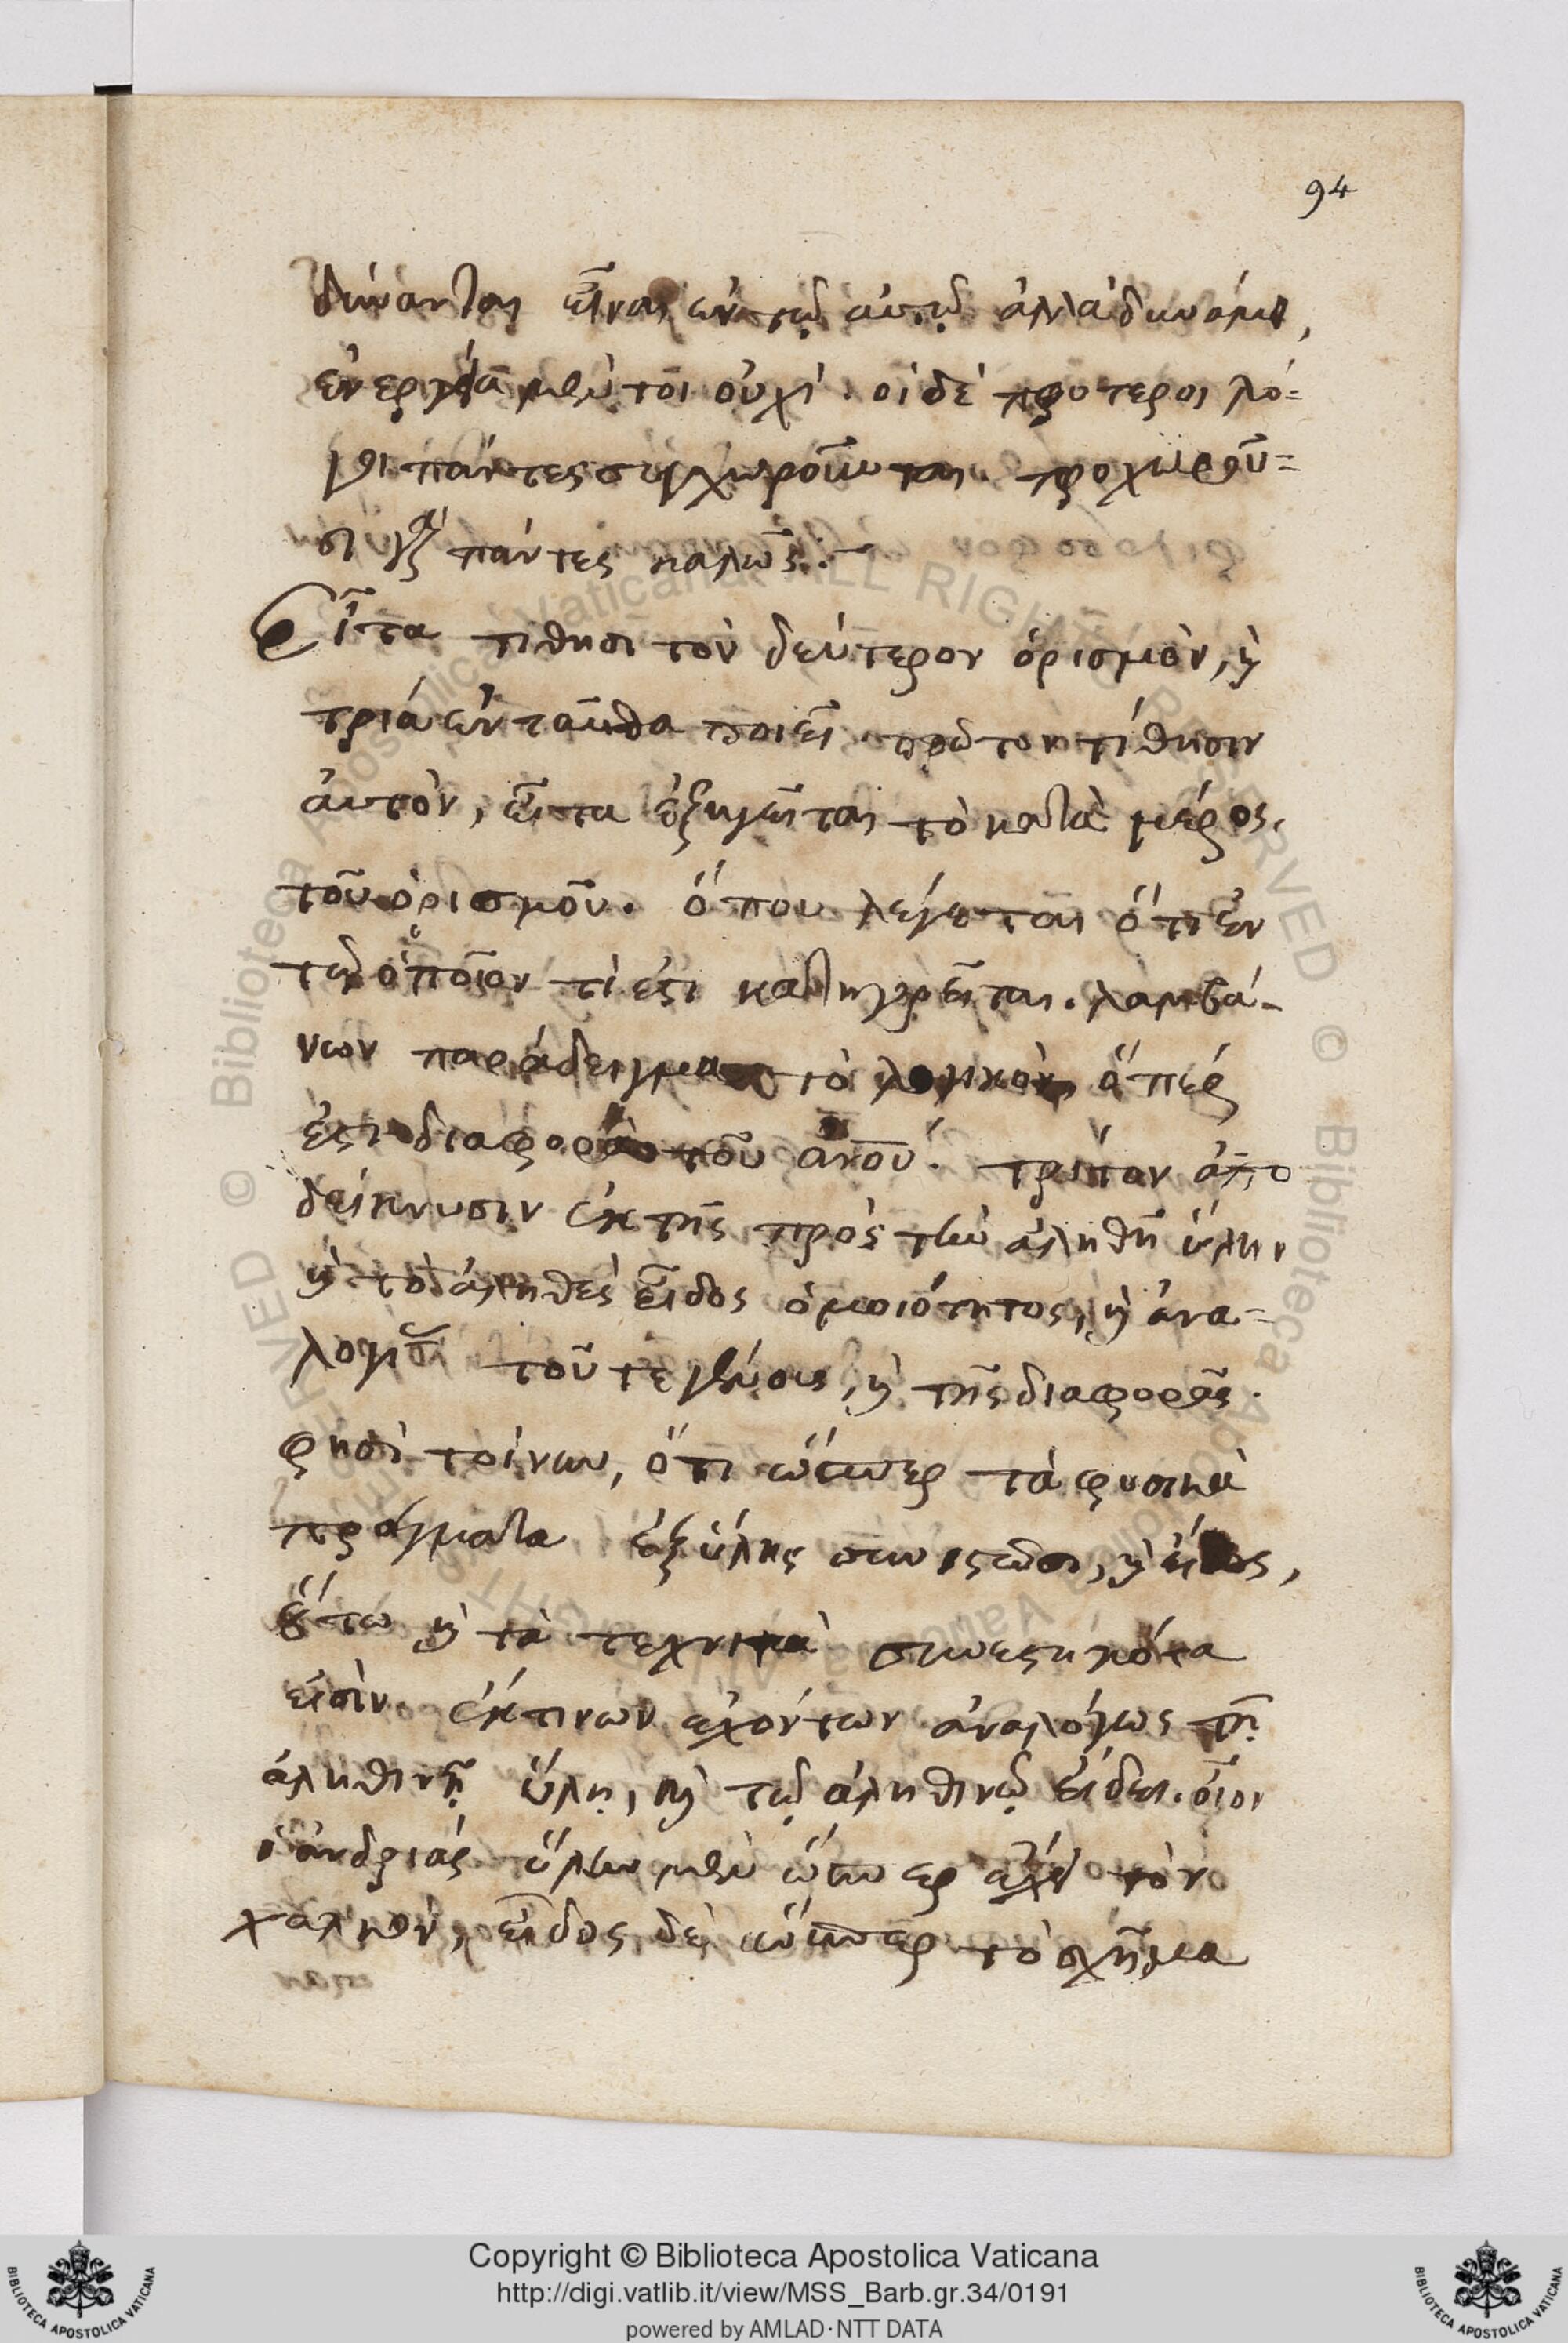 94
δύνανται εἶναι ἐν τῷ αὐτῷ ἀλλὰ δυνάμει,
ἐνεργείᾳ μέν τοι οὐχί. οἱ δὲ πρότεροι λό=
γοι πάντες συγχωροῦνται. προχωροῦ=
σι γὰρ πάντες καλῶς:
Εἶτα τίθησι τὸν δεύτερον ὁρισμὸν, κὶ
τρία ἐνταῦθα ποιεῖ. πρῶτον τίθησιν
αὐτὸν, εἶτα ἐξηγεῖται τὸ κατὰ μέρος.
τοῦ ὁρισμοῦ. ὅπου λέγεται ὅτι ἐν
τῷ ὁποῖον τί ἐστι κατηγορεῖται. λαμβά-
νων παράδειγμα τὸ λογικὸν ὅπερ
ἐστὶ διαφορὰ τοῦ ἀνου. τρίτον ἀπο
δείκνυσιν ἐκ τῆς πρὸς τὴν ἀληθῆ ὕλην
κὶ τὸ ἀληθὲς εἶδος ὁμοιότητος, κὶ ἀνα=
λογίας τοῦ τε γένους, κὶ τῆς διαφορᾶς.
φησὶ τοίνυν, ὅτι ὥσπερ τὰ φυσικὰ
πράγματα ἐξ ὕλης συνιστῶσι, κὶ εἴδος,
οὕτω κὶ τὰ τεχνικὰ συνεστηκότα
εἰσὶν ἐκ τινων ἐχόντων ἀναλόγως τῇ
ἀληθινῇ ὕλῃ, κὶ τῷ ἀληθινῷ εἴδει. οἷον
ὁ ἀνδριάς ὕλην μὲν ὥσπερ ἔχει τὸν
χαλκὸν, εἶδος δὲ ὥσπερ τὸ σχῆμα
Copyright © Biblioteca Apostolica Vaticana
http://digi.vatlib.it/view/MSS_Barb.gr.34/0191
powered by AMLAD·NTT DATA